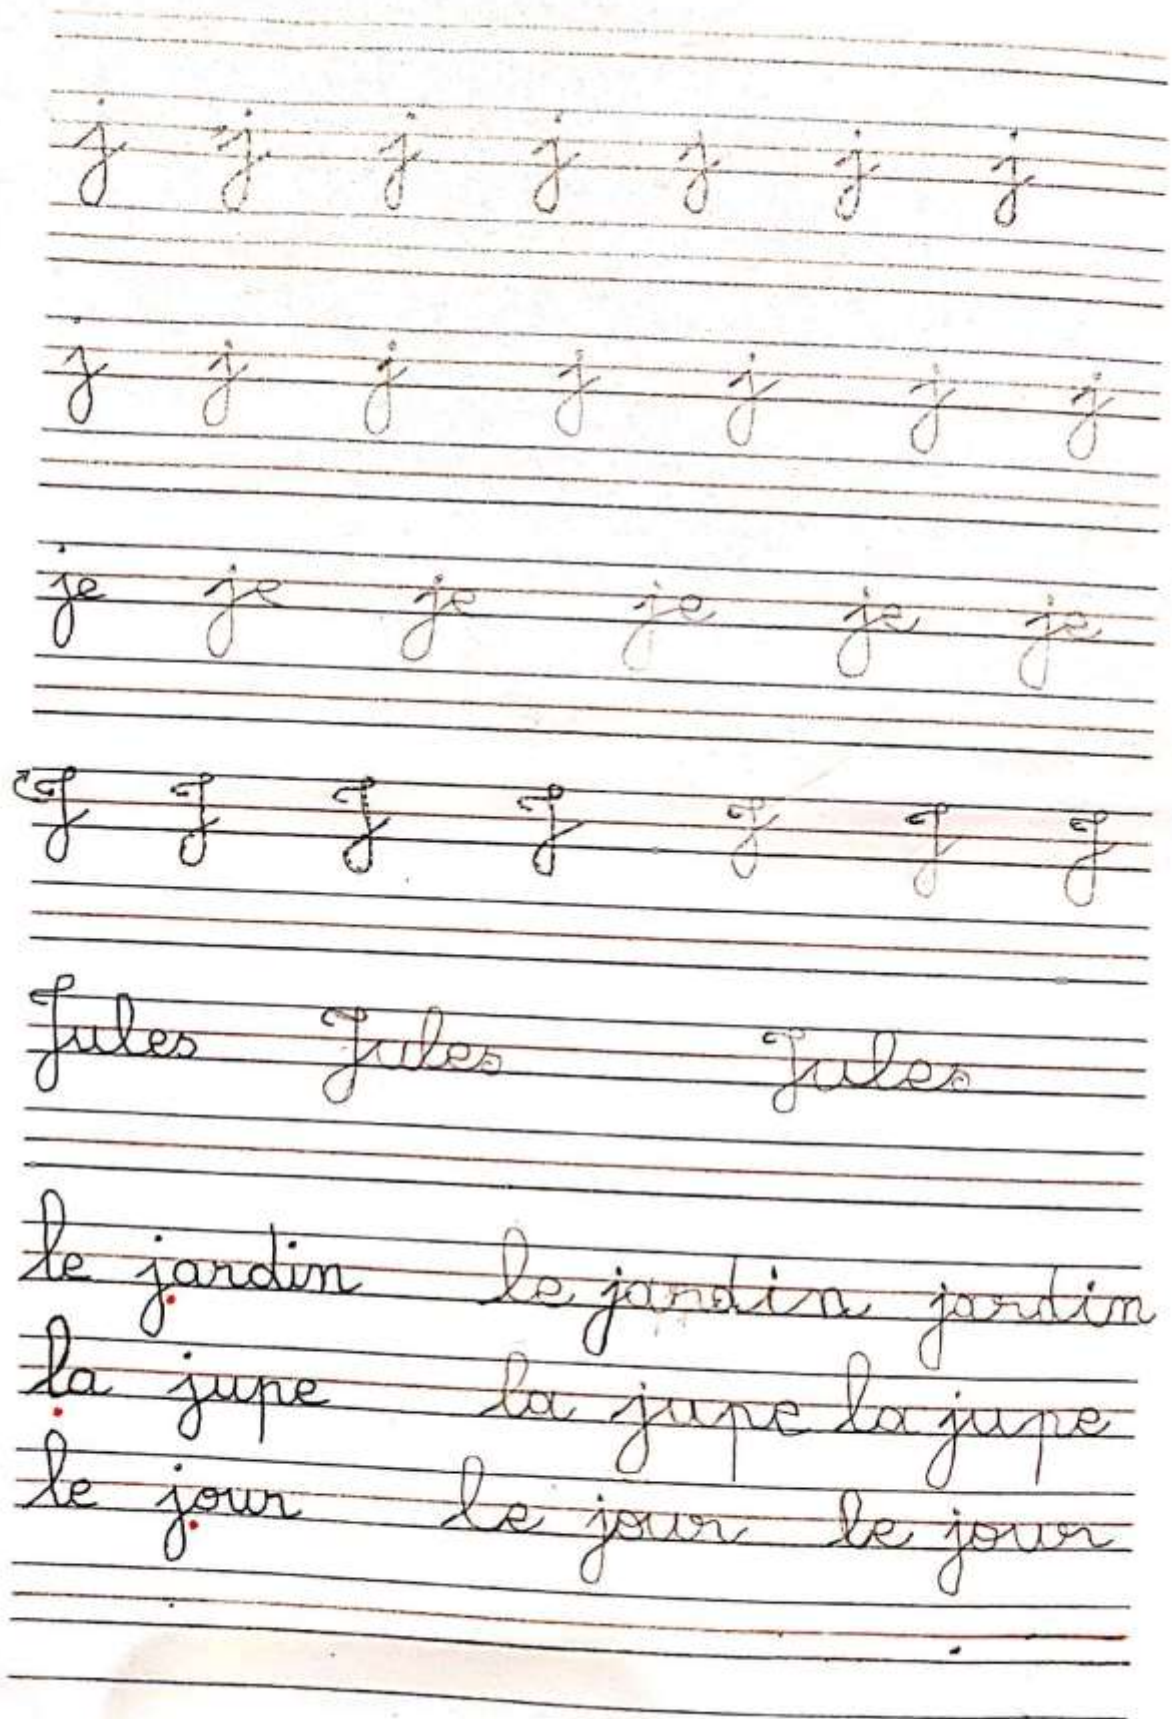 j j j j j j j
j j j j j j j
je je je je je je
J J J J J J J
Jules Jules Jules
le jardin le jardin jardin
la jupe la jupe la jupe
le jour le jour le jour